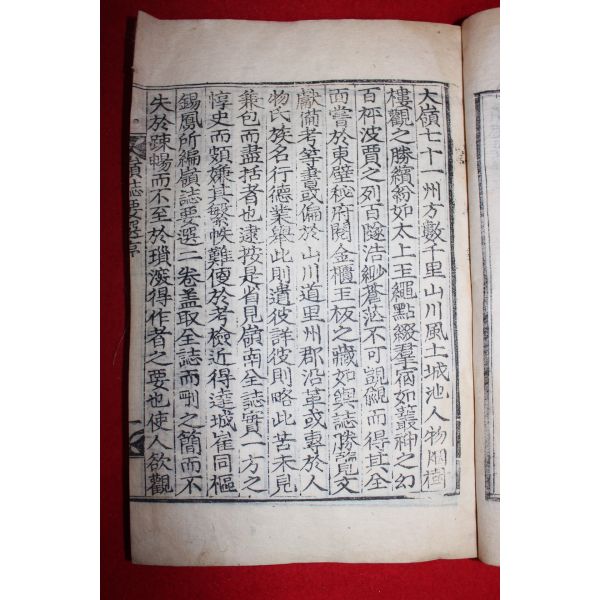 大嶺七十一州方數千里山川風土城池人物
樓觀之勝繽紛如太上玉繩點綴羣宿如叢神之幻
百秤波賈之列百隧浩紗蒼茫不可覬覦而得其全
面嘗於東壁秘府閱金櫃玉板之藏如輿誌勝覽文
獻備考等書或偏於山川道里州郡沿革或專於人
物氏族名行德業舉此則遺彼詳彼則略此苦未見
兼包而盡括者也逮按是省見嶺南全誌實一方之
惇史而頗嫌其繁帙難便於考檢近得達城崔同樞
錫鳳所編嶺誌要選二卷盖取全誌而刪之簡而不
失於疎暢而不至於瑣深得作者之要也使人欲觀
嶺誌要選序
一